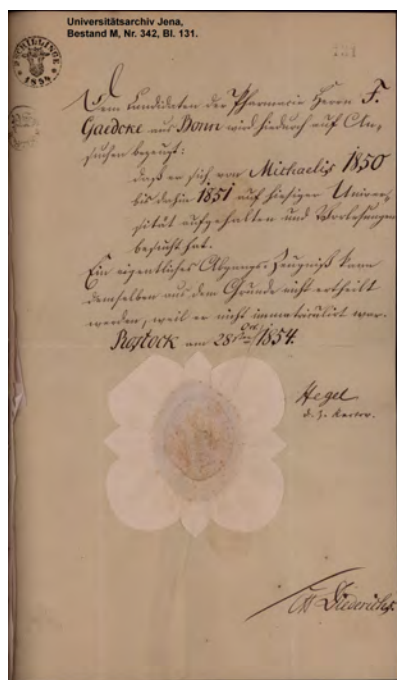 Universitätsarchiv Jena,
Bestand M, Nr. 342, Bl. 131.
SCHILLINGE
1854
131
Dem Candidaten der Pharmacie Herrn F.
Gaedcke aus Bonn wird hiedurch auf An-
suchen bezeugt:
daß er sich von Michaelis 1850
bis dahin 1851 auf hiesiger Univer-
sität aufgehalten und Vorlesungen
besucht hat.
Ein eigentliches Abgangs-Zeugniß kann
demselben aus dem Grunde nicht ertheilt
werden, weil er nicht immatriculirt war.
Rostock am 28 Oct 1854.
Hegel
d. Z. Rector.
Diederichs.